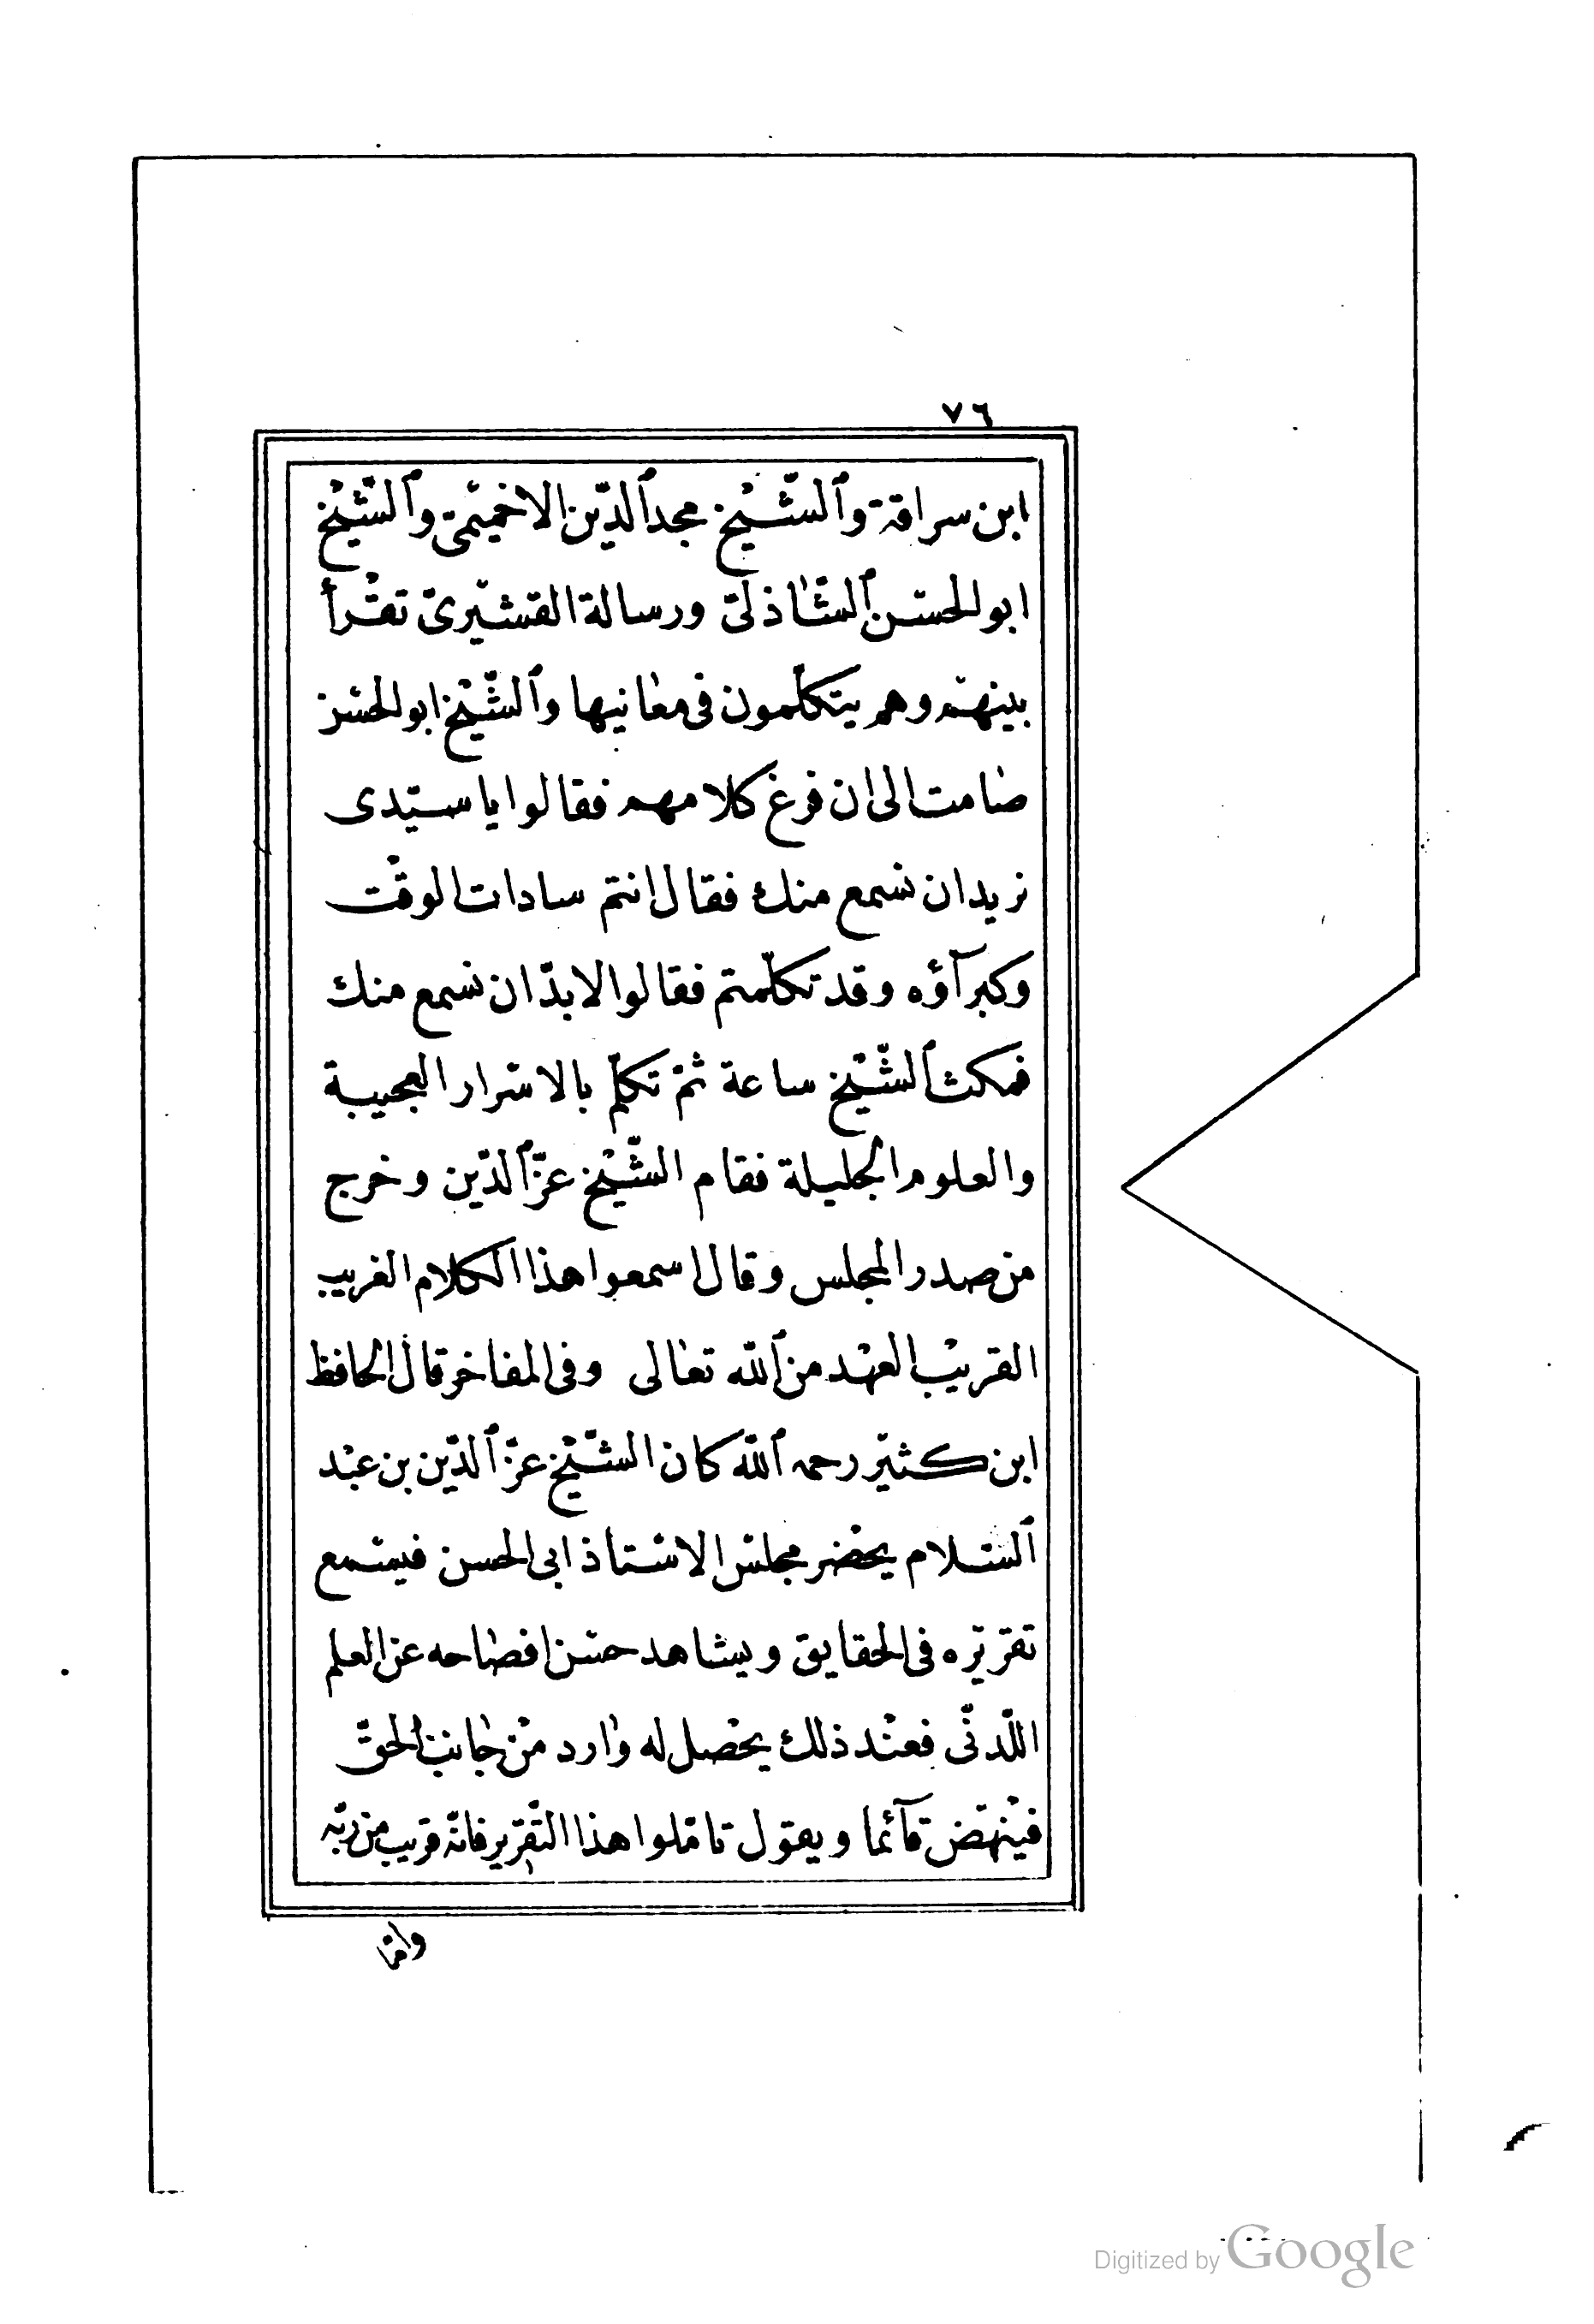 ٧٦
ابن سراقة وٱلشّيخ مجدٱلدّين الاخميمى وٱلشّيخ
ابوالحسن ٱلشّاذلىّ ورسالة القشيرىّ تقرأ
بينهم وهم يتكلّمون فى معانيها وٱلشّيخ ابوالحسن
صامت الى ان فرغ كلامهم فقالوا يا سيّدى
نريد ان نسمع منك فقال انتم سادات الوقت
وكبرآؤه وقد تكلّمتم فقالوا لابدّ ان نسمع منك
فمكث ٱلشّيخ ساعة ثمّ تكلّم بالاسرار العجيبة
والعلوم الجليلة فقام الشّيخ عزّٱلدّين وخرج
من صدر المجلس وقال اسمعوا هذا الكلام الغريب
القريب العهد من ٱللّه تعالى وفى المفاخر قال الحافظ
ابن كثير رحمه ٱللّه كان الشّيخ عزّ ٱلدّين بن عبد
ٱلسّلام يحضر مجلس الاستاذ ابى الحسن فيسمع
تقريره فى الحقايق ويشاهد حسن افصاحه عن العلم
اللّدنّى فعند ذلك يحصل له وارد من جانب الحقّ
فينهض قآئما ويقول تامّلوا هذا التّقرير فانّه قريب من ربّه
Digitized by Google